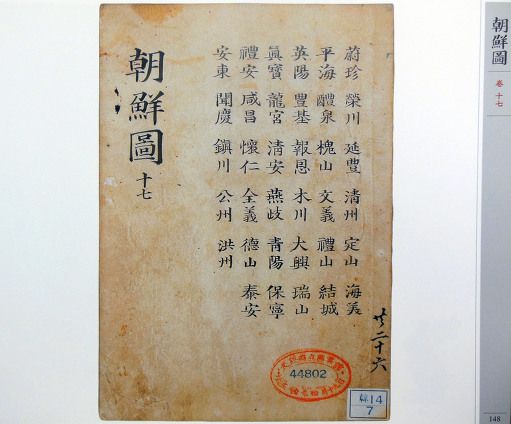 朝鮮圖
卷十七
蔚珍 榮川 延豐 清州 定山 海美
平海 醴泉 槐山 文義 禮山 結城
英陽 豐基 報恩 木川 大興 瑞山
眞寶 龍宮 清安 燕岐 青陽 保寧
禮安 咸昌 懷仁 全義 德山 泰安
安東 聞慶 鎭川 公州 洪州
朝鮮圖 十七
二十六
44802
14
7
148